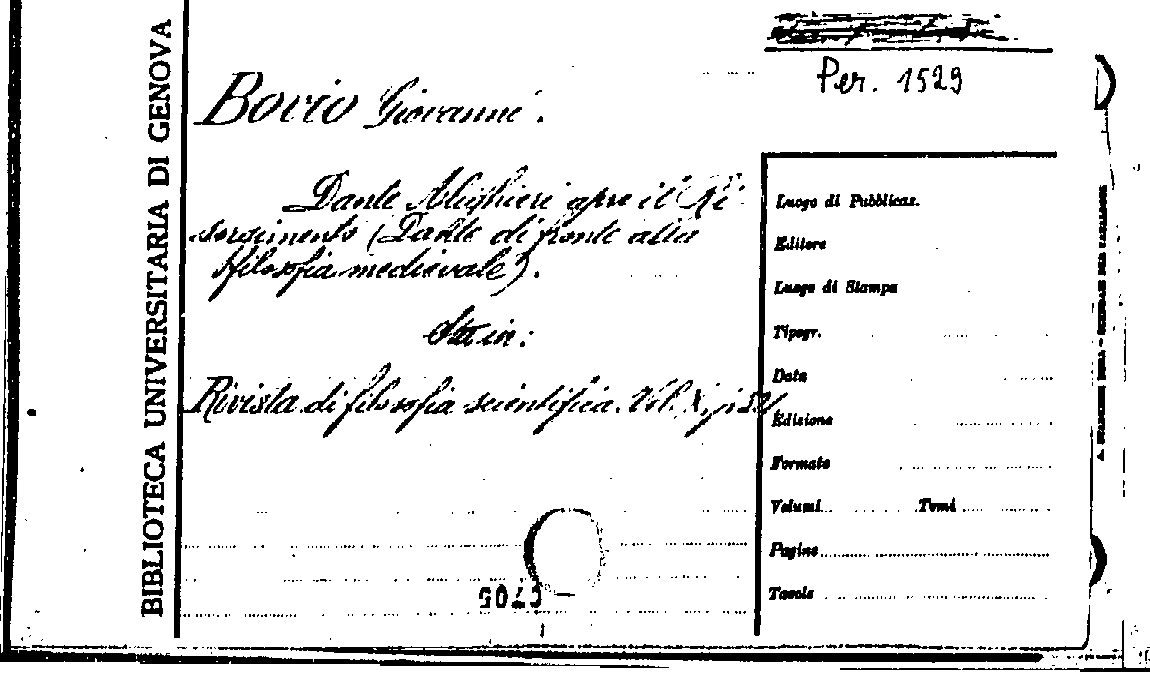 BIBLIOTECA UNIVERSITARIA DI GENOVA
Per. 1529
Bovio Giovanni.
Dante Alighieri apre il Ri-
sorgimento (Dante di fronte alla
filosofia medievale).
Sta in:
Rivista di filosofia scientifica. Vol. X, p.
Luogo di Pubblicaz.
Editore
Luogo di Stampa
Tipogr.
Data
Edizione
Formato
Volumi Tomi
Pagine
Tavole